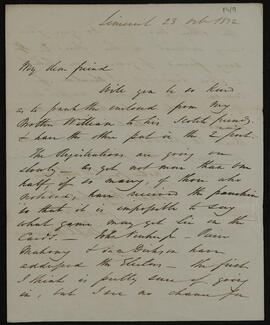 Limerick 23 Oct 1832
My dear friend
Will you be so kind
as to the enclosed from my
Brother William to his Scotch friend,
& have the other put in the 2 post.
The Registrations are going on
slowly — as yet not more than one
half, if so many, of those who
noticed, have the franchise
so that it is impossible to say
what game may yet lie in the
Cards. — John
Mahony & Dickson have
addressed the Electors — the first
I think is pretty sure of going
in, but I see no chance for